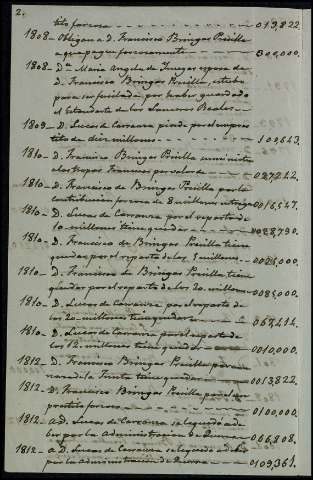 2.
tito forzoso - - - - - - 013,822.
1808- Obligan a D. Francisco Bringas Presilla
a que pague forzosamente - - - 300,000.
1808- Da. Maria Angela de esposa de
D. Francisco Bringas Presilla, estubo
para ser fusilada por haber guardado
el Estandarte de los Lanceros Reales -
1809- D. Lucas de Carranza pierde por el empres
tito de diez millones - - - - - - 109,643.
1810- D. Francisco Bringas Presilla suministra
a las tropas Francesas por valor de - 027,242.
1810- D. Francisco de Bringas Presilla por la
contribucion forzosa de 8 millones 0016,547.
1810- D. Lucas de Carranza por el reparto de
10 millones tiene quedar - - 0028,790.
1810- D. Francisco de Bringas Presilla tiene
quedar por el reparto de los 5 millones - 0025,000.
1810- D. Francisco de Bringas Presilla tiene
quedar por el reparto de los 20. millones 0085,000.
1810- D. Lucas de Carranza por el reparto de
los 20. millones tiene quedar - - 068,214.
1810- D. Lucas de Carranza por el reparto de
los 12. millones tiene quedar - - 0010,000.
1812- D. Francisco Bringas Presilla para
la Junta tiene quedar - - 0013,822.
1812- D. Francisco Bringas Presilla por el em
prestito forzoso - - - - - 0100,000.
1812- A D. Lucas de Carranza se le quedó a de
ber por la Administracion de 066,808.
1812- A D. Lucas de Carranza se le quedó a deber
por la administracion de 0109,361.